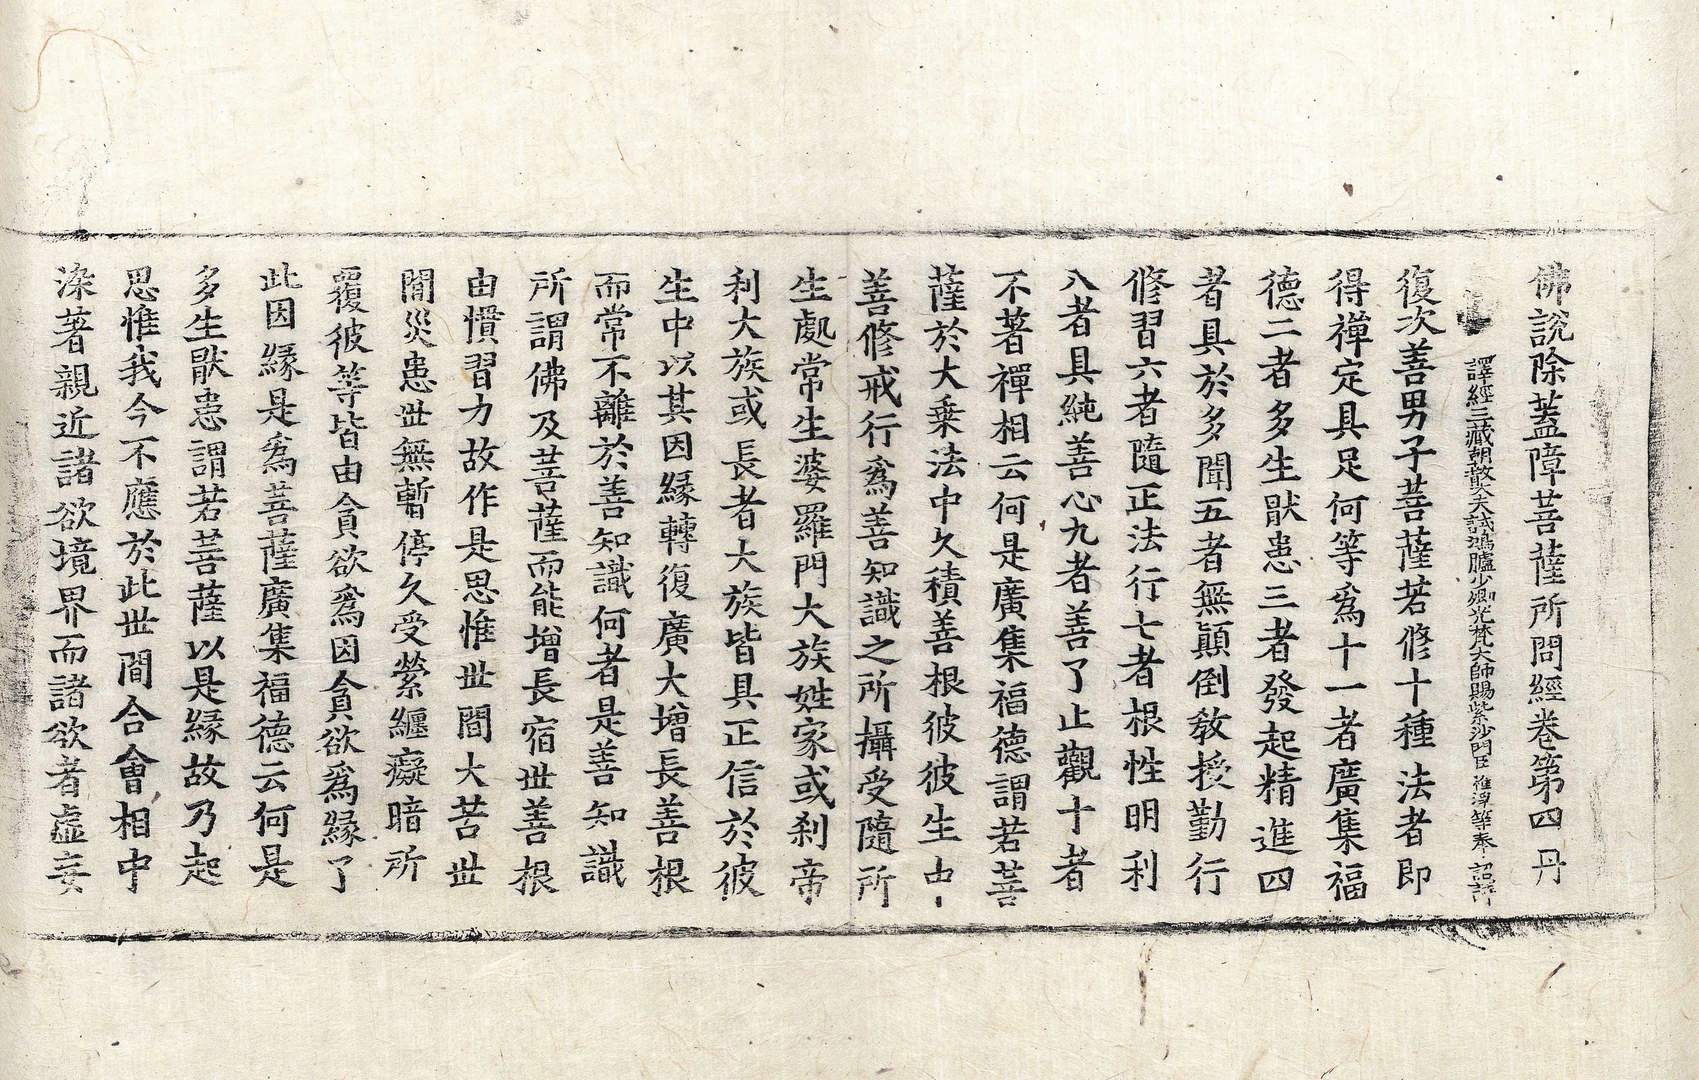 佛說除蓋障菩薩所問經卷第四 丹
譯經三藏朝散大夫試鴻臚少卿光梵大師賜紫沙門臣惟淨等奉 詔譯
復次善男子菩薩若修十種法者即
得禪定具足何等爲十一者廣集福
德二者多生厭患三者發起精進四
者具於多聞五者無顚倒敎授勤行
修習六者隨正法行七者根性明利
八者具純善心九者善了止觀十者
不著禪相云何是廣集福德謂若菩
薩於大乗法中久積善根彼彼生中
善修戒行爲善知識之所攝受隨所
生處常生婆羅門大族姓家或刹帝
利大族或長者大族皆具正信於彼
生中以其因緣轉復廣大增長善根
而常不離於善知識何者是善知識
所謂佛及菩薩而能增長宿世善根
由慣習力故作是思惟世間大苦世
間災患世無暫停久受縈纏癡暗所
覆彼等皆由貪欲爲因貪欲爲緣了
此因緣是爲菩薩廣集福德云何是
多生厭患謂若菩薩以是緣故乃起
思惟我今不應於此世間合會相中
染著親近諸欲境界而諸欲者虛妄